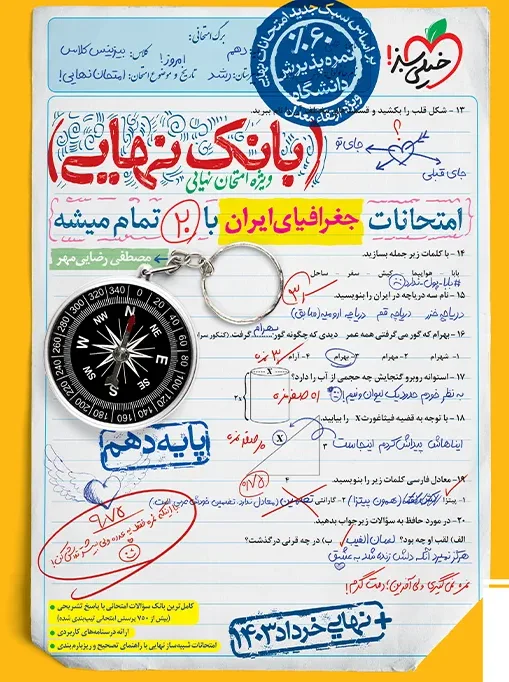 خیلی سبز!
برگ امتحانی:
کلاس: بیزینس کلاس
امروز!
دهم
تاریخ و موضوع امتحان: امتحان نهایی!
رشد
براساس سبک جدید امتحانات نهایی
۶۰٪
نمره پذیرش
دانشگاه
ویژه ارتقاء معدل
۱۳ - شکل قلب را بکشید و
ببرید.
؟
جای تو
جای قبلی
(بانک نهایی)
ویژه امتحان نهایی
امتحانات جغرافیای ایران با ۲۰ تمام میشه
مصطفی رضایی‌مهر
۱۴ - با کلمات زیر جمله بسازید.
بابا - هواپیما - کیش - سفر - ساحل
#بابا_پول_نداره
۱۵ - نام سه دریاچه در ایران را بنویسید.
دریاچه خزر دریاچه قم دریاچه ارومیه (سابق)
۱۶ - بهرام که گور می گرفتی همه عمر دیدی که چگونه گور بهرام گرفت.
۱- شهرام ۲- مهرام ۳- بهرام ۴- آرام
۱۷ - استوانه روبرو گنجایش چه حجمی از آب را دارد؟
به نظر خودم حدود یک لیوان و نیم!
X
۲x
۱۸ - با توجه به قضیه فیثاغورث X را بیابید.
ایناهاش پیداش کردم اینجاست
X
۳
۴
۱۹ - معادل فارسی کلمات زیر را بنویسید.
۱- پیتزا (همون پیتزا) ۲- گارانتی تضمین
۲۰ - در مورد حافظ به سؤالات زیر جواب بدهید.
الف) لقب او چه بود؟ لسان الغیب ب) در چه قرنی درگذشت؟
هرگز نمیرد آنکه دلش زنده شد به عشق
پایه دهم
N NE E SE S SW W NW
0 20 40 60 80 100 120 140 160 180 200 220 240 260 280 300 320 340
۹/۷۵
کامل‌ترین بانک سؤالات امتحانی با پاسخ تشریحی
(بیش از ۷۵۰ پرسش امتحانی تیپ‌بندی شده)
ارائه درسنامه‌های کاربردی
امتحانات شبیه‌ساز نهایی با راهنمای تصحیح و ریزبارم‌بندی
+ نهایی خرداد ۱۴۰۳